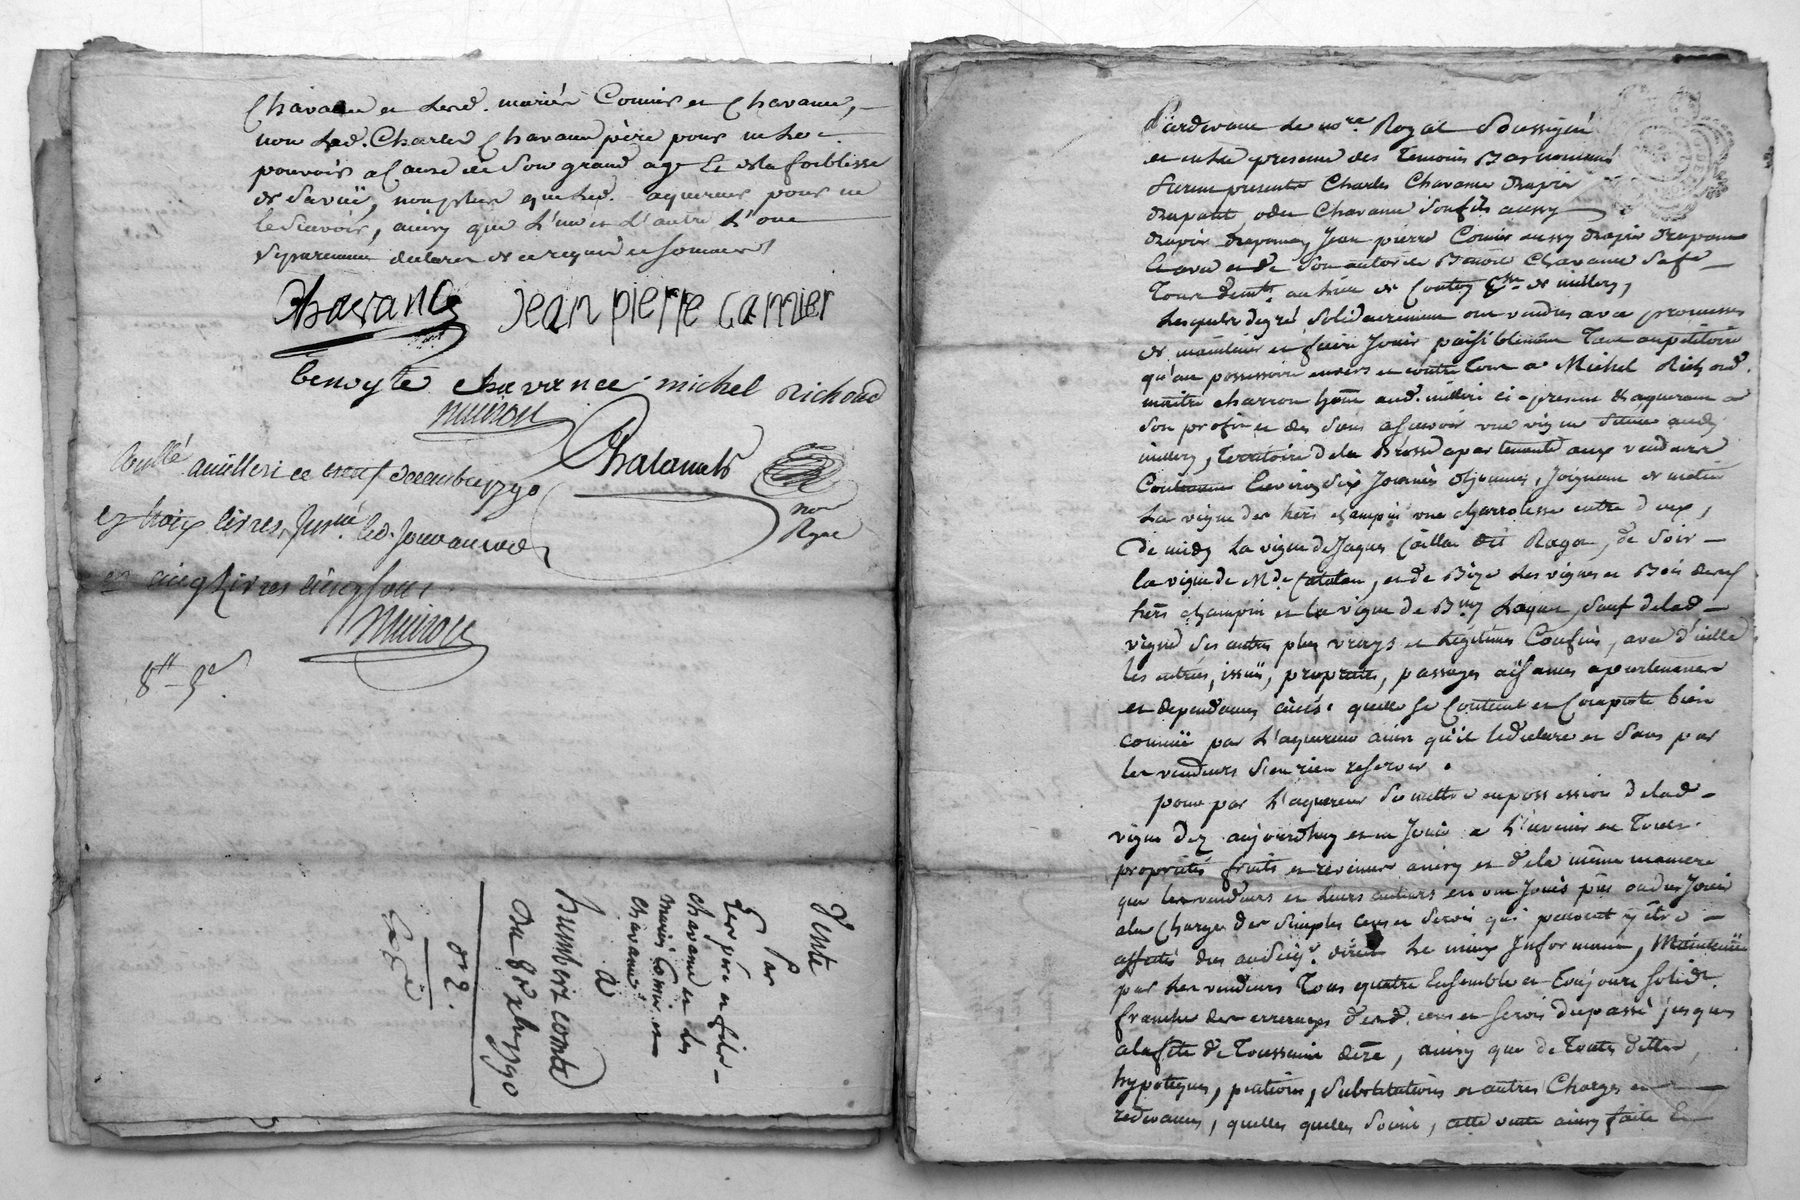 Chavanne et lesd. mariés Comier et Chavanne,
non led. Charles Chavanne père pour ne le
pouvoir a cause de son grand age et de la foiblisse
de sa vüe, non plus que led. aquereur pour ne
le sçavoir, ainsy que l'un et l'autre l'ont
séparement declaré de ce requis et sommés
Chavanne jean pierre camier
benoyte chavance michel Richoud
muiron
Chalamels
nore
Royal
Conllé a milleri ce neuf decembre 1790
et trois livres,
et cinq livres cinq sous
muiron
8tt - 5s.
Vente
Par
Les père et fils
Chavanne et les
mariés Comier et
Chavanne
a
humbert comte
Du 8e xbre 1790
no 2.
Pardevant le nore Royal Soussigné
et en la presence des temoins Bas nommés
Furent presents Charles Chavanne drapier
drapant, Chavanne son fils aussy
drapier drapant, Jean pierre Comier aussy drapier drapant
et de son autorité Benoite Chavanne sa fe
tous demts. au lieu de Psse de millery,
Lesquels de gré solidairement ont vendu avec promesses
de maintenir et faire Jouir paisiblement tant au petitoire
qu'au possessoire envers et contre tous a Michel Richoud
maitre charron aud. milleri ci present et aquereur a
son profit et des siens asçavoir une vigne située aud.
millery, territoire de la Brosse apartenante aux vendeurs
Contenant Environ six Journés d'hommes, Joignant de matin
La vigne des hers champin une charrolisse entre deux,
de midy la vigne de Jaques Caillat dit Raga, de soir
la vigne de Md. Catalan, et de Bize les vignes et Bois desd.
hers champin et la vigne de Laquet, sauf de lad.
vigne ses autres plus vrays et legitimes Confins, avec d'icelle
les entrées, issües, proprietés, passages aisances apartenances
et dependances ainsi quelle se Contient et Comporte bien
connüe par l'aquereur ainsi qu'il le declare et sans par
les vendeurs s'en rien reserver.
pour par l'aquereur se mettre en possession de lad.
vigne dez aujourdhuy et en Jouir a l'avenir en toutes
proprietés fruits et revenus ainsy et de la même maniere
que les vendeurs et leurs auteurs en ont Joui pus ou du Jouir
a la Charge des simples cens et servis qui peuvent y être
affectés dus au Seigr. direct le mieux Informant, Maintenüe
par les vendeurs tous quatre Ensemble et toujours solidt.
franche des arrerages desd. cens et servis du passé jusques
a la fête de toussaint dere, ainsy que de toutes dettes,
hypoteques, pentions, substitutions et autres Charges et
redevances, quelles quelles soient, cette vente ainsy faite Et